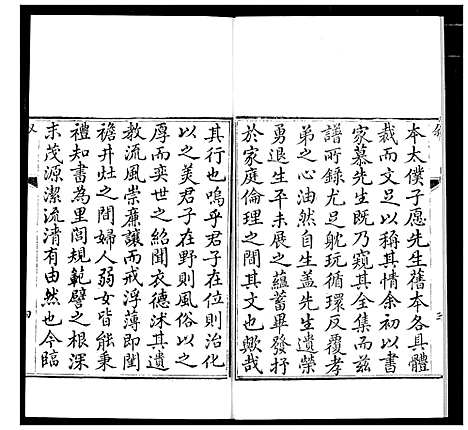 本太僕子愿先生舊本各具體
裁而文足以稱其情余初以書
家慕先生既乃窺其全集而茲
譜所錄尤足躭玩循環反覆孝
弟之心油然自生盖先生遺榮
勇退生平未展之蘊蓄畢發抒
於家庭倫理之間其文也歟哉
其行也嗚乎君子在位則治化
以之美君子在野則風俗以之
厚而奕世之紹聞衣德述其政
教流風崇廉讓而戒浮薄即閨
襜井灶之間婦人弱女皆能秉
禮知書為里閭規範譬之根深
末茂源潔流清有由然也今臨